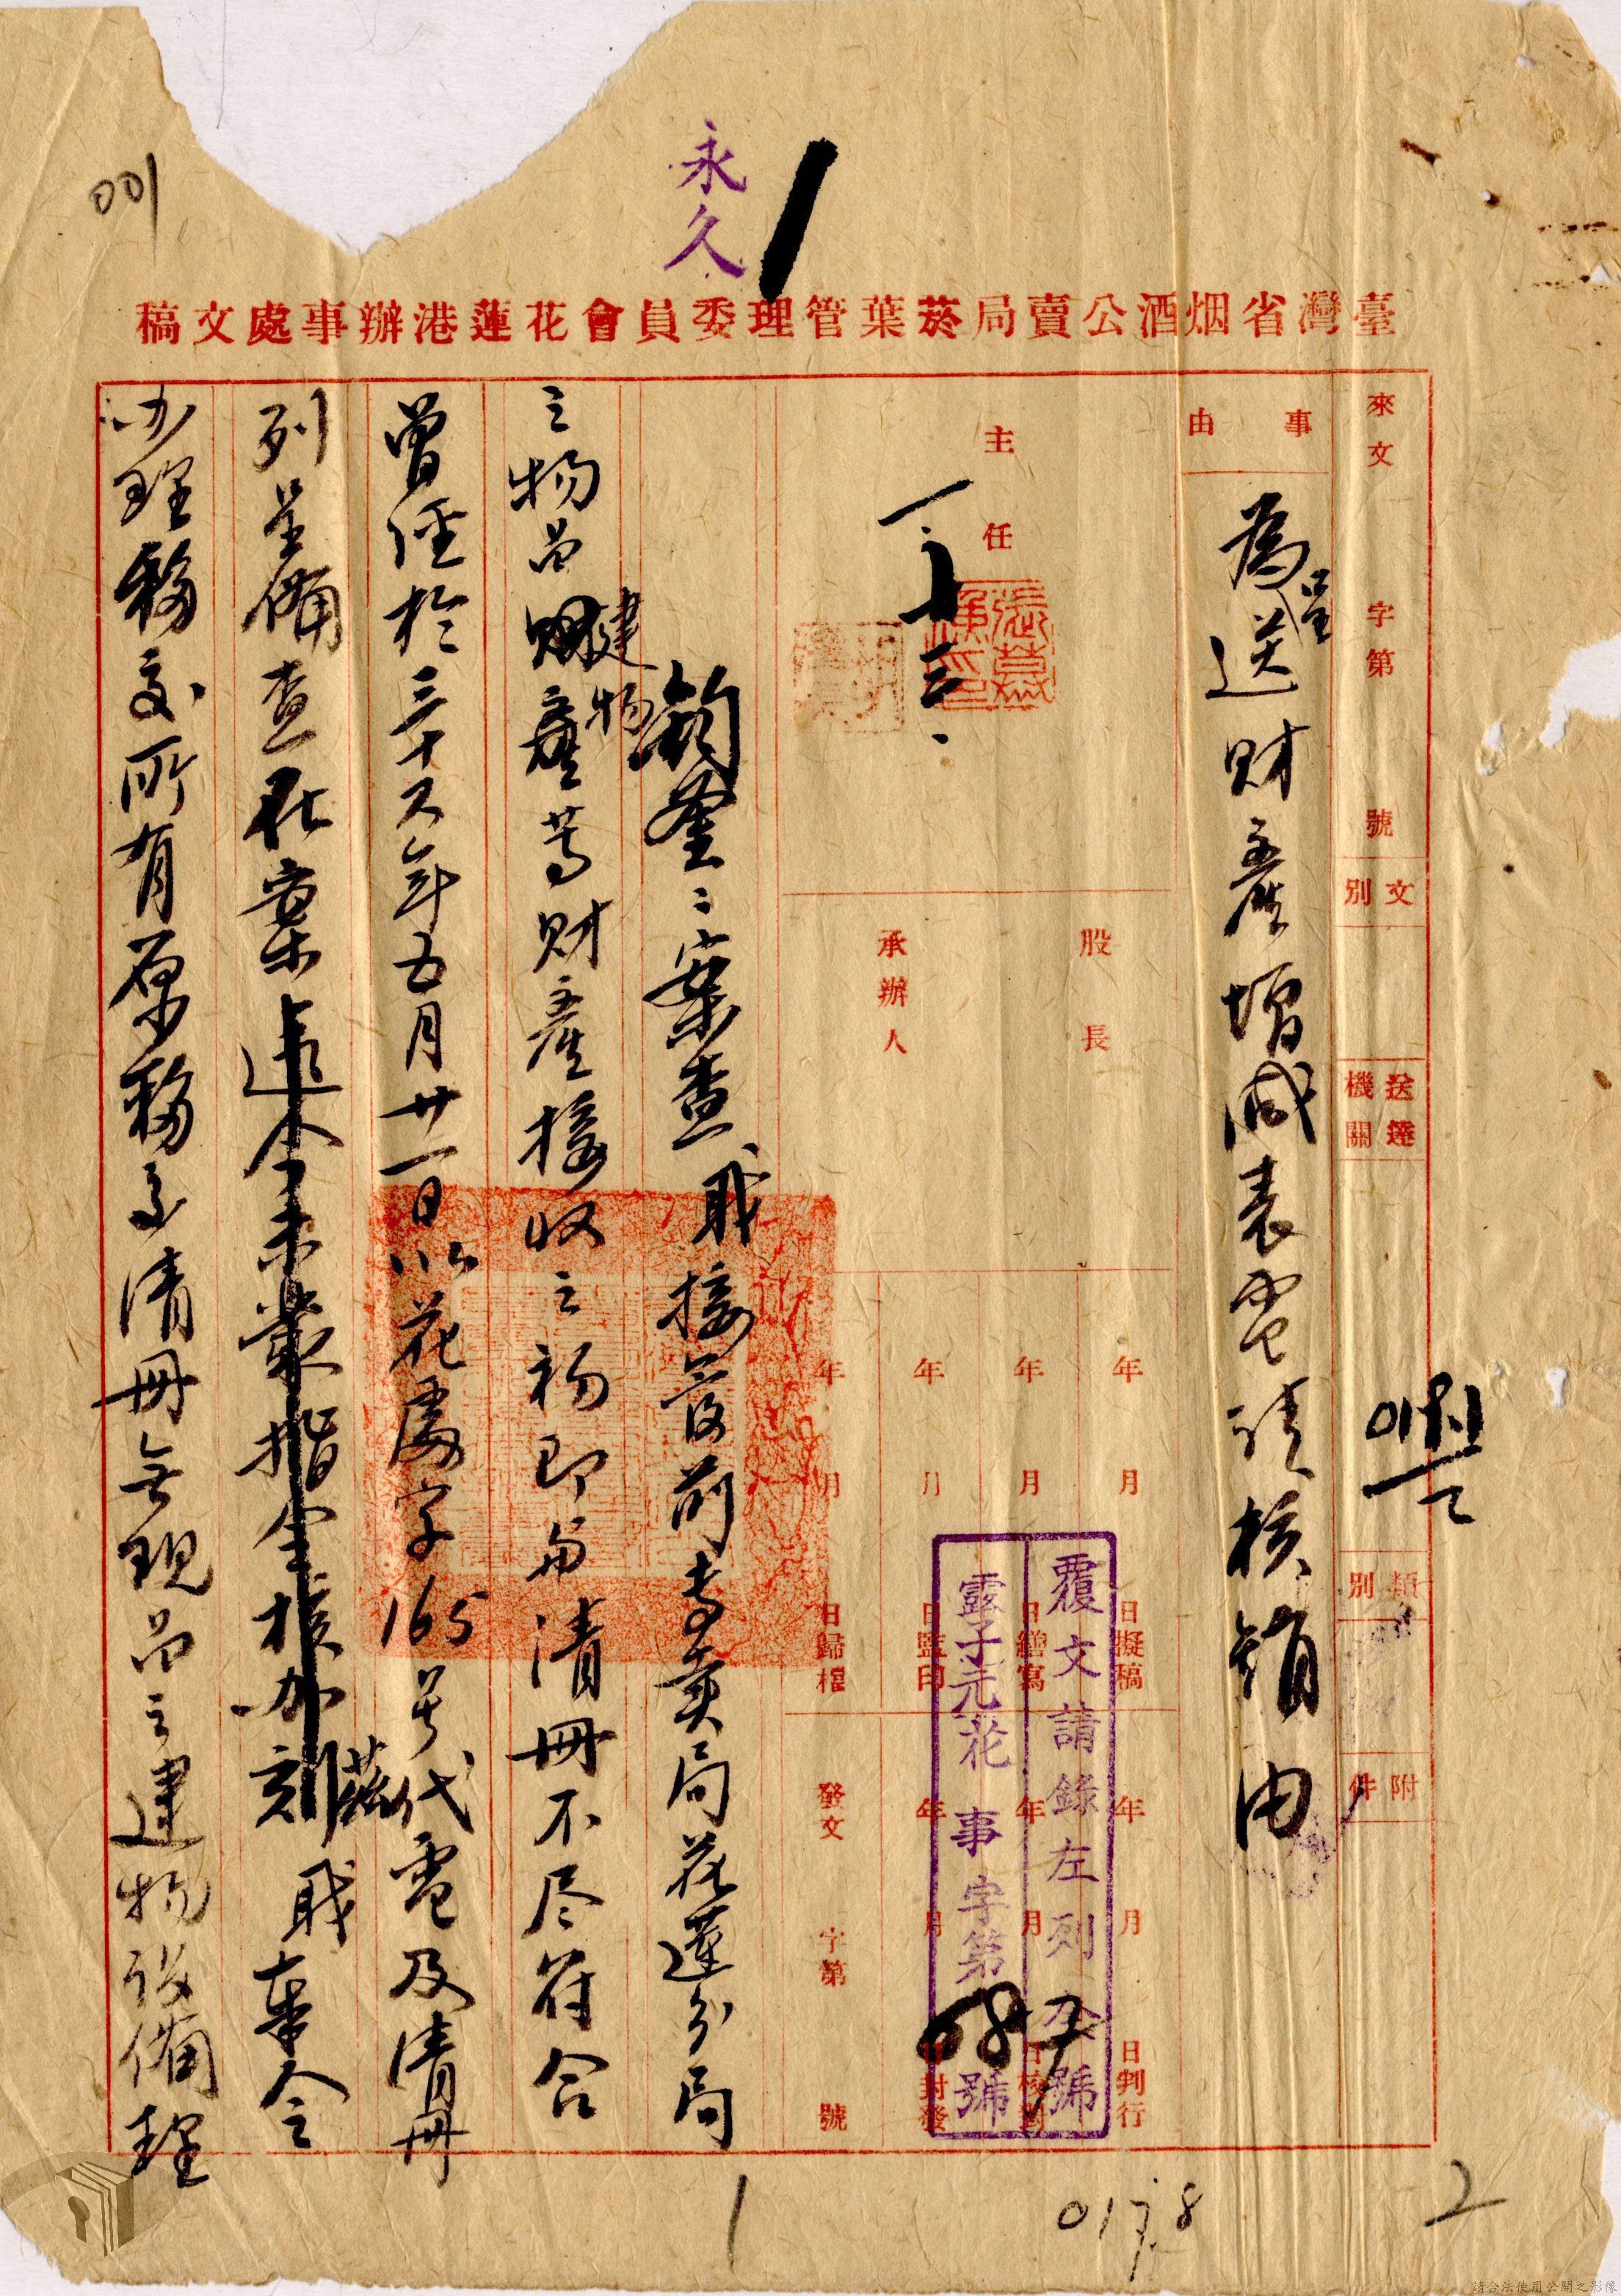 永久
001
臺灣省烟酒公賣局菸葉管理委員會花蓮港辦事處文稿
來文 字第 號
文別
送達機關
類別
附件
事由
為呈送財產增減表電請核銷由
主任
股長
承辦人
年 月 日擬稿
年 月 日繕寫
年 月 日監印
年 月 日歸檔
年 月 日判行
年 月 日校對
年 月 日封發
發文 字第 號
覆文請錄左列 號
露子元花 事 字第 號
鈞鑒：案查職接管前專賣局花蓮分局
之物品建物等財產接收之初即與清冊不尽符合
曾經於三十六年五月廿一日以花處字165号代電及清冊
列呈備查在案迄今未蒙指令核办茲職奉令
办理移交所有原移交清冊無現品之建物設備理
1
0178
2
請合法使用公開之影像